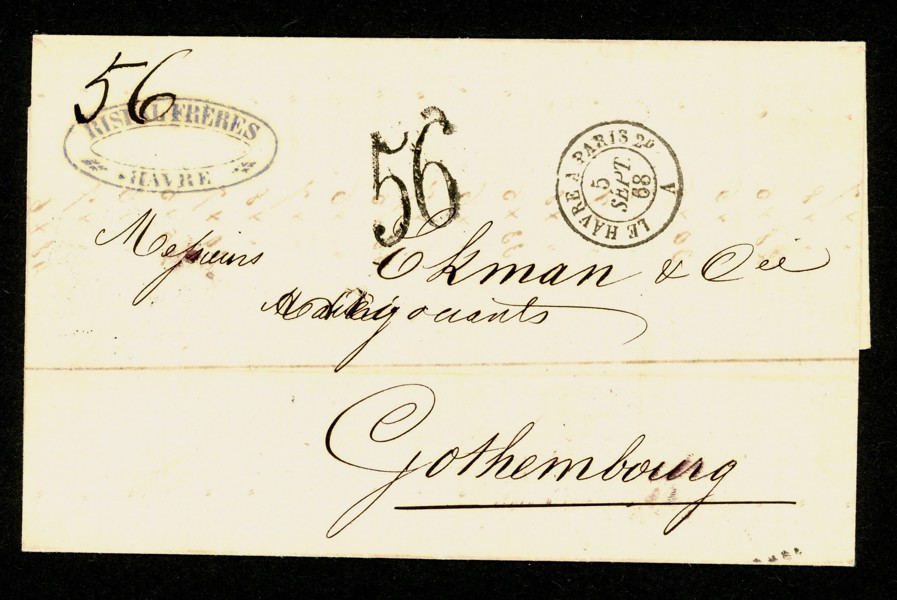 56
FRÈRES
HAVRE
56
LE HAVRE A PARIS 2D
5
SEPT.
68
A
Messieurs Ekman & Cie
Gothembourg